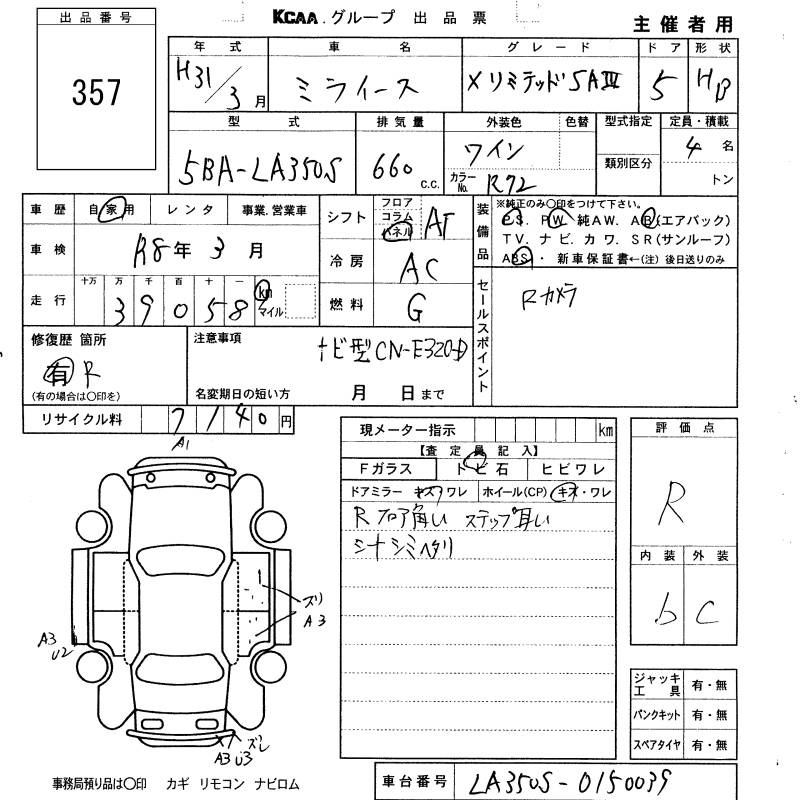 KCAA.グループ 出品票
主催者用
出品番号
357
年式 車名 グレード ドア 形状
H31/3月 ミライース Xリミテッド SAⅢ 5 HB
型式 排気量 外装色 色替 型式指定 定員・積載
5BA-LA350S 660 c.c. ワイン 類別区分 4名
カラーNo. R72 トン
車歴 自家用 レンタ 事業.営業車
シフト フロア コラム パネル AT
装備品 ※純正のみ〇印をつけて下さい。
P.S. P.W. 純AW. AB(エアバック)
TV. ナビ. カワ. SR(サンルーフ)
ABS・ 新車保証書←(注)後日送りのみ
車検 R8年 3月
冷房 AC
走行 十万 万 千 百 十 一
39058 km マイル
燃料 G
セールスポイント
Rカメラ
修復歴 箇所
有 R
(有の場合は〇印を)
注意事項
ナビ型CN-E320-D
名変期日の短い方 月 日まで
リサイクル料 7140円
現メーター指示 km
【査定員記入】
Fガラス トビ石 ヒビワレ
ドアミラー キズ ワレ ホイール(CP) キズ・ワレ
Rフロア角い ステップ耳い
シートシミヘタリ
評価点
R
内装 外装
b C
A1
ズリ
A3
A3
U2
ズレ
A3 U3
ジャッキ工具 有・無
パンクキット 有・無
スペアタイヤ 有・無
事務局預り品は〇印 カギ リモコン ナビロム
車台番号 LA350S-0150039